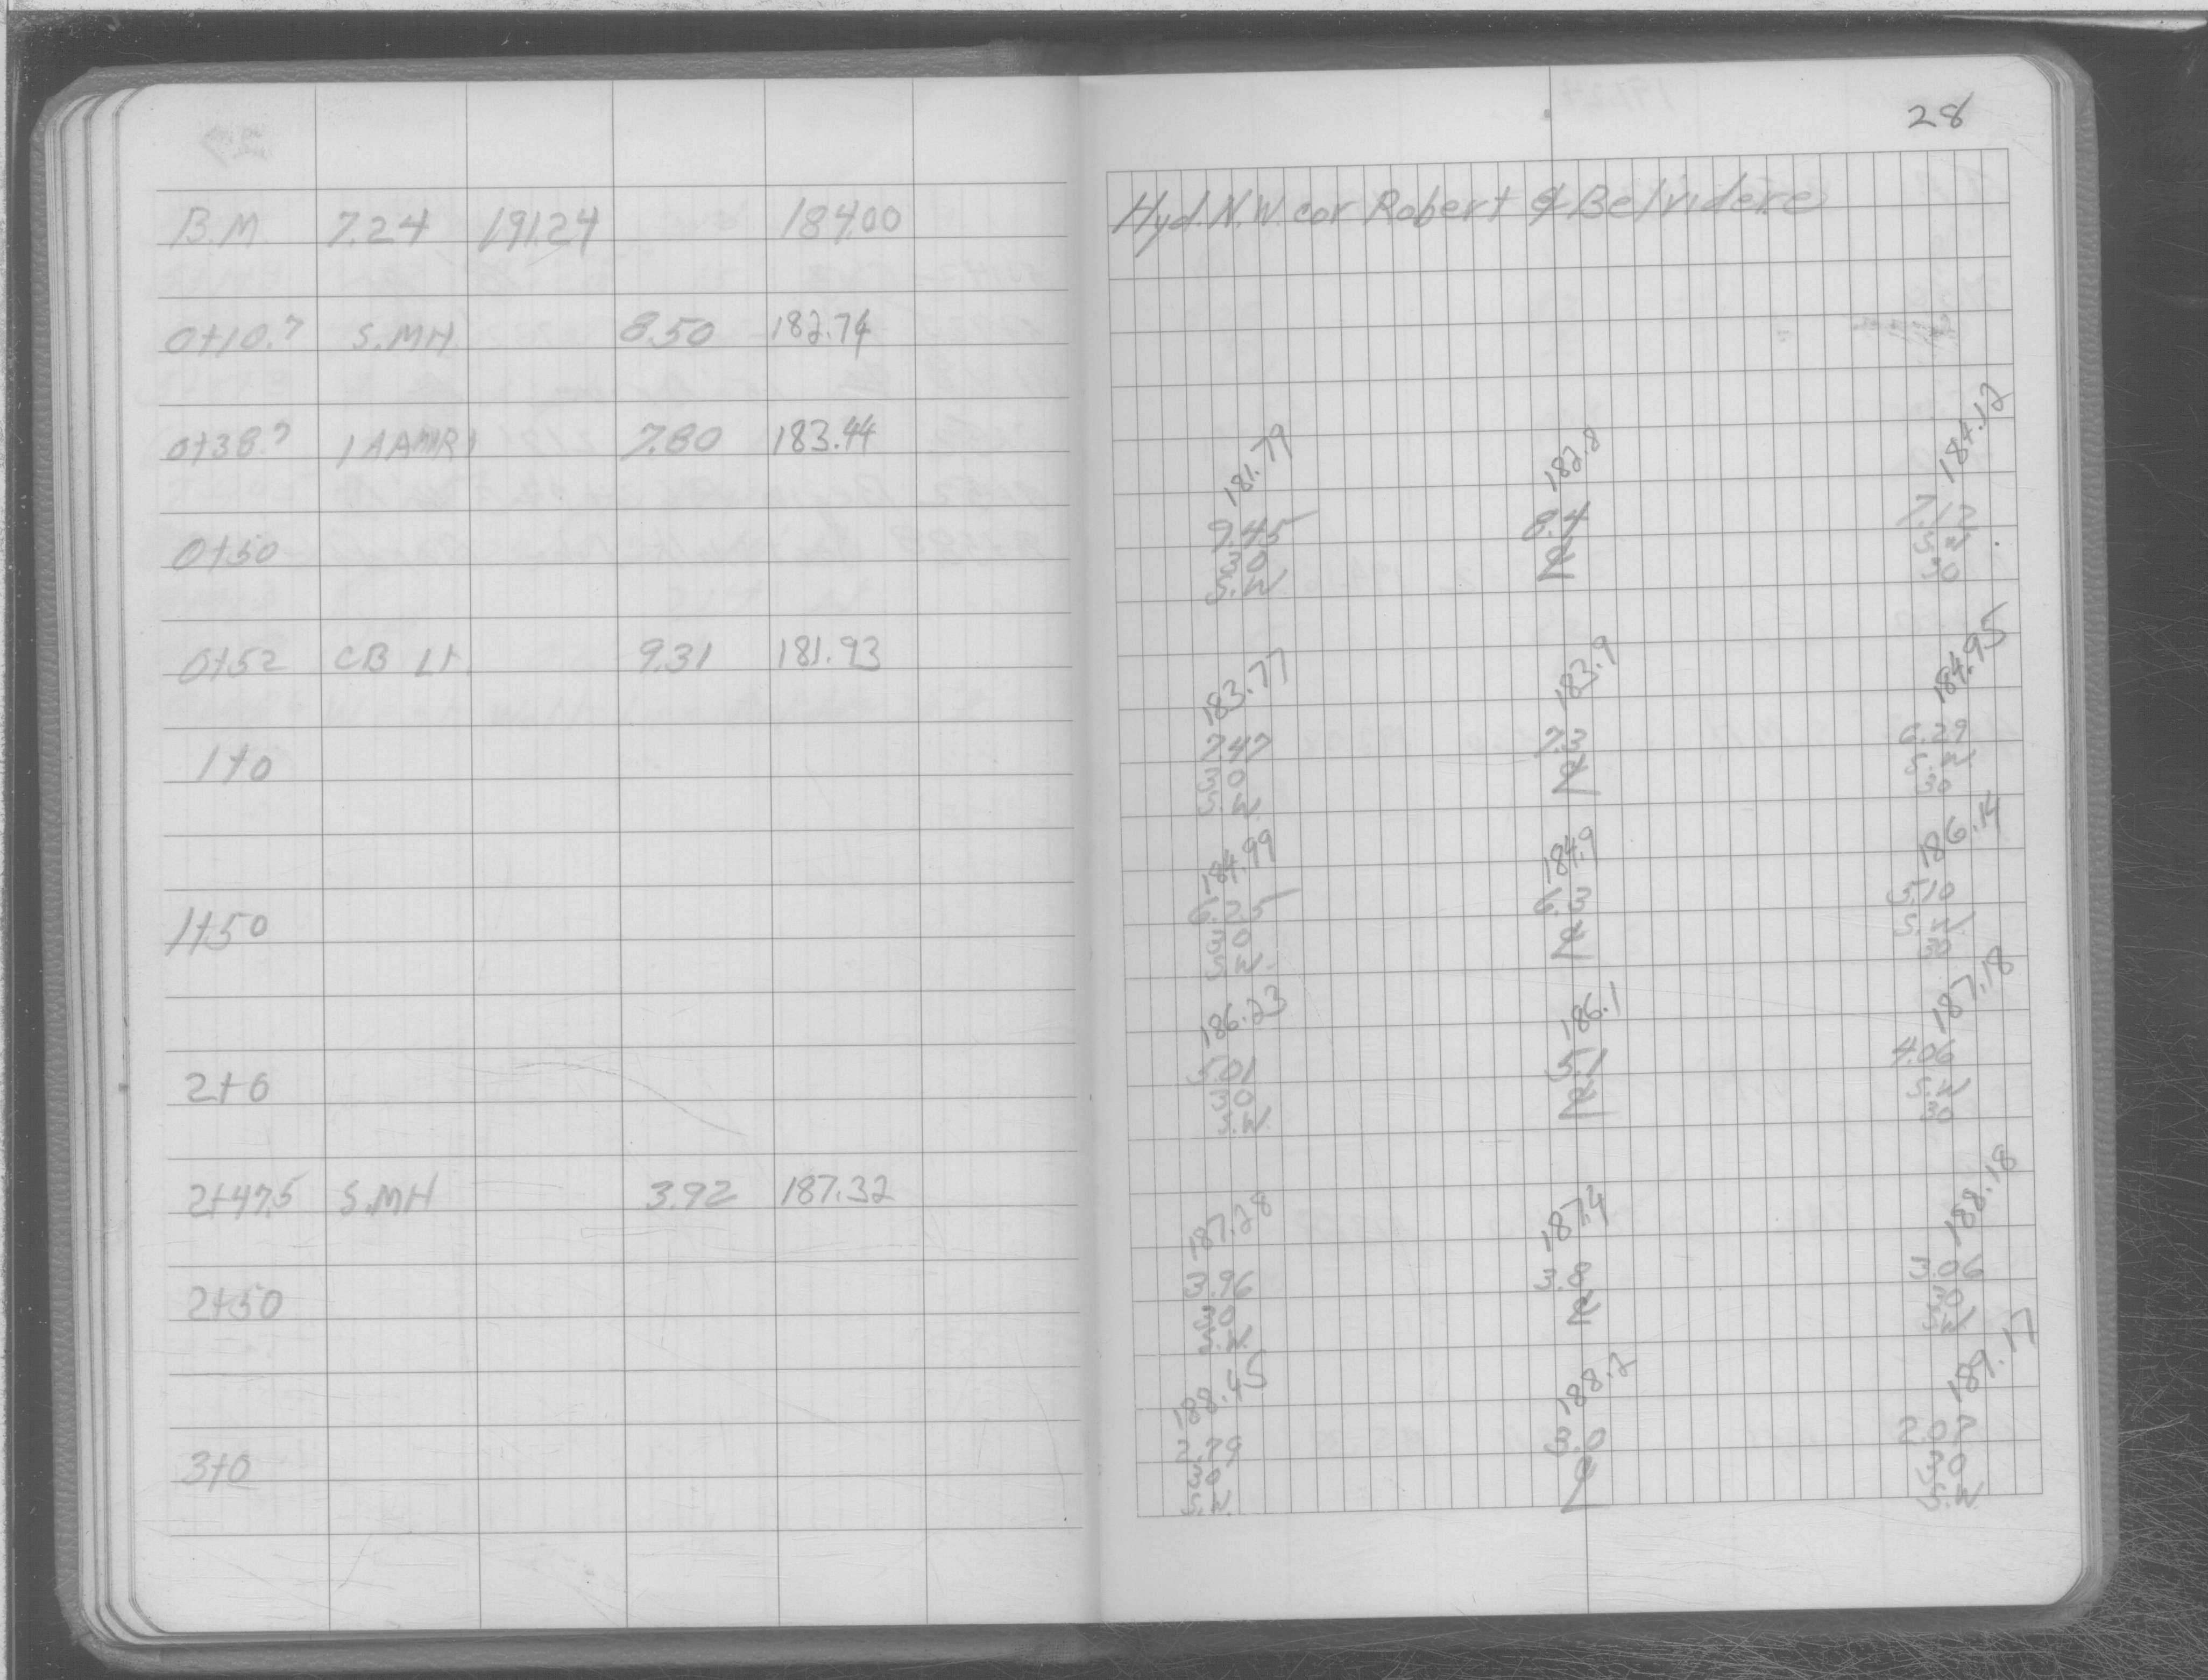 28
B.M. 7.24 191.24 184.00 Hyd. N.W. cor Robert & Belvidere
0+10.7 S.MH 8.50 182.74
0+38.7 7.80 183.44
181.79 182.8 184.12
9.45 8.4 7.12
0+50 30 ℄ S.W
S.W 30
0+52 CB Lt. 9.31 181.93
183.77 183.9 184.95
7.47 7.3 6.29
1+0 30 ℄ S.W
S.W. 30
184.99 184.9 186.14
6.25 6.3 5.10
1+50 30 ℄ S.W.
S.W. 30
186.23 186.1 187.18
5.01 5.1 4.06
2+0 30 ℄ S.W
S.W. 30
2+47.5 S.MH 3.92 187.32
187.28 187.4 188.18
3.96 3.8 3.06
2+50 30 ℄ 30
S.W. S.W
188.45 188.2 189.17
2.79 3.0 2.07
3+0 30 ℄ 30
S.W. S.W